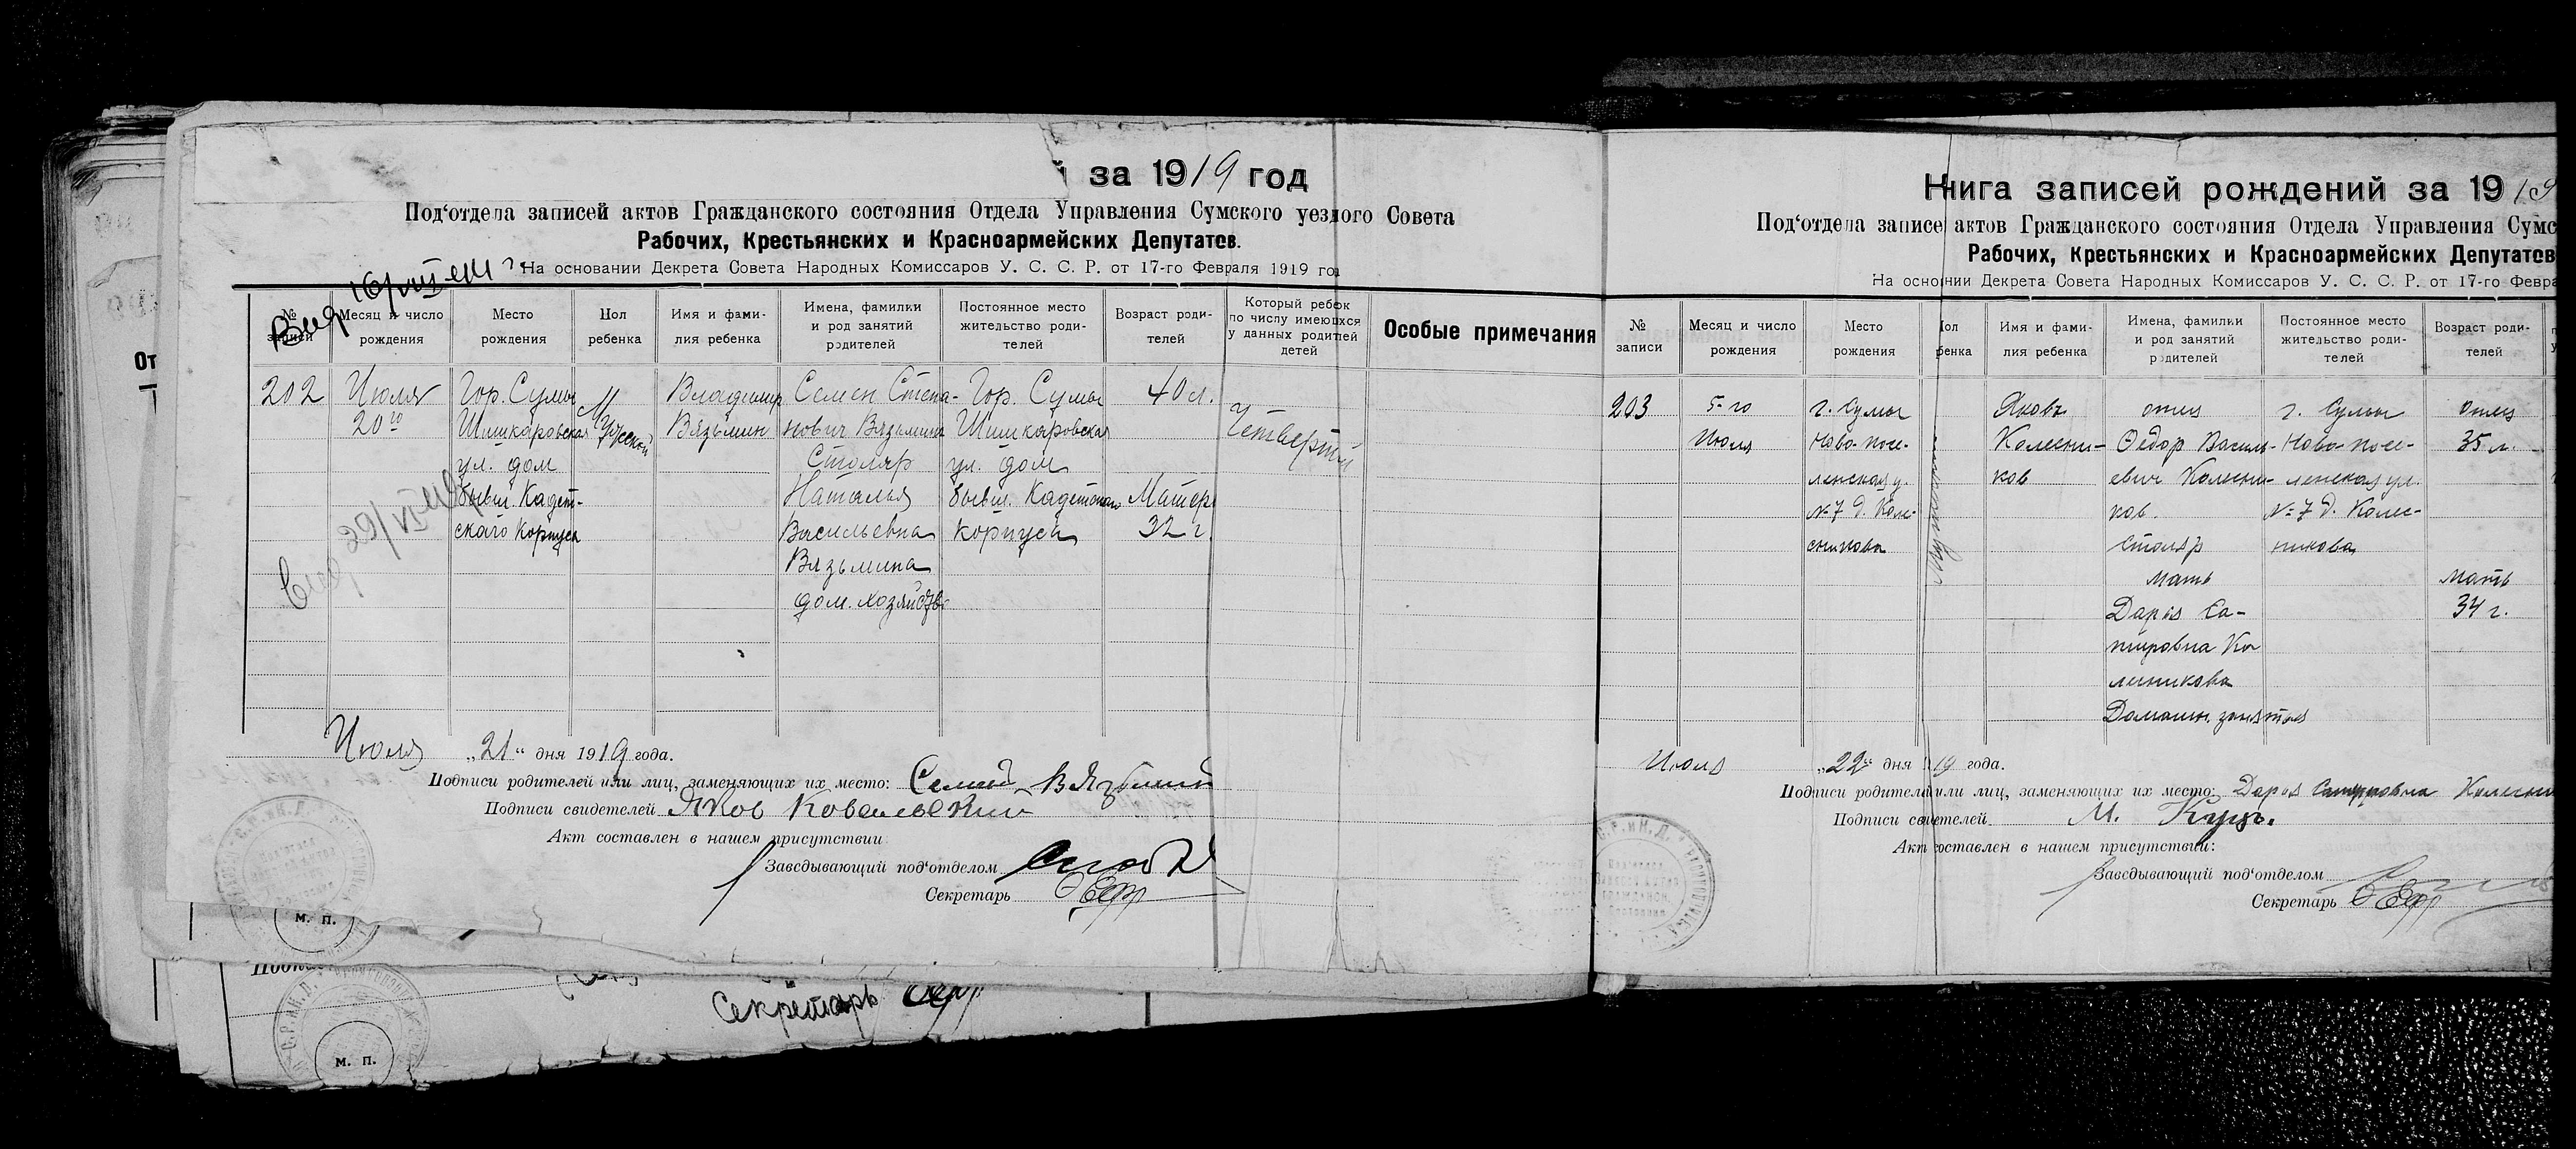 за 1919 год
Под‘отдела записей актов Гражданского состояния Отдела Управления Сумского уездного Совета
Рабочих, Крестьянских и Красноармейских Депутатов.
На основании Декрета Совета Народных Комиссаров У. С. С. Р. от 17-го Февраля 1919 го
№ записи
Месяц и число рождения
Место рождения
Пол ребенка
Имя и фамилия ребенка
Имена, фамилии и род занятий родителей
Постоянное место жительство родителей
Возраст родителей
Который ребенок по числу имеющихся у данных родителей детей
Особые примечания
202
Июля
20го
Гор. Сумы
Шишкаровская
ул. дом
бывш. Кадет-
скаго Корпуса
Мужской
Владимир
Вязьмин
Семен Степа-
нович Вязьмин
Столяр
Наталья
Васильевна
Вязьмина
дом. хозяйство
Гор. Сумы
Шишкаровская
ул. дом
бывш. Кадетскаго
корпуса
40 л.
Матер.
32 г.
Четвертый
Июля „21“ дня 1919 года.
Подписи родителей или лиц, заменяющих их место: Семен Вязьмин
Подписи свидетелей Яков Ковальский
Акт составлен в нашем присутствии
Заведывающий под‘отделом
Секретарь
М. П.
Секретарь
М. П.
От
Книга записей рождений за 1919
Под‘отдела записе актов Гражданского состояния Отдела Управления Сумс
Рабочих, Крестьянских и Красноармейских Депутатов
На основании Декрета Совета Народных Комиссаров У. С. С. Р. от 17-го Февра
№ записи
Месяц и число рождения
Место рождения
Пол ребенка
Имя и фамилия ребенка
Имена, фамилии и род занятий родителей
Постоянное место жительство родителей
Возраст родителей
203
5-го
Июля
г. Сумы
Ново-посе-
ленская у.
№ 7 д. Колес-
никова
Яковъ
Колесни-
ков
отец
Федор Василь-
евич Колесни-
ков.
столяр
мать
Дарья Са-
Ко
лесникова
Домашн. занятия
г. Сумы
Ново-посе-
ленская ул.
№ 7 д. Колес-
никова
отец
35 л.
мать
34 г.
Июля „22“ дня 1919 года.
Подписи родителей или лиц, заменяющих их место: Дарья
Подписи свидетелей М. Куцъ.
Акт составлен в нашем присутствии:
Заведывающий под‘отделом
Секретарь